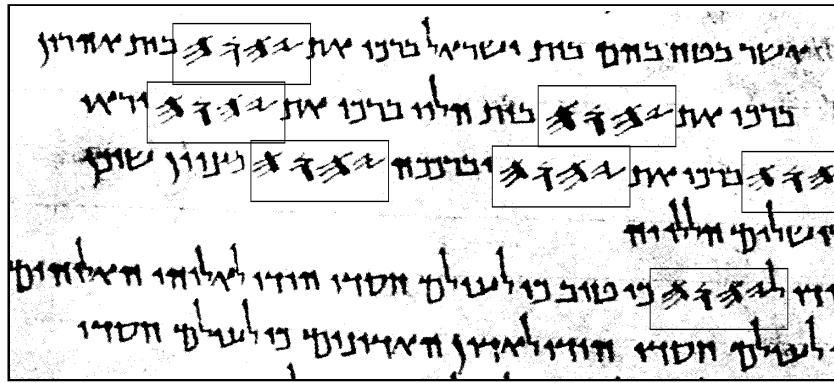 אשר בטח בהם בית ישראל ברכו את 𐤉𐤄𐤅𐤄 בית אהרון
ברכו את 𐤉𐤄𐤅𐤄 בית הלוי ברכו את 𐤉𐤄𐤅𐤄 יראי
𐤄𐤅𐤄 ברכו את 𐤉𐤄𐤅𐤄 יברככה 𐤉𐤄𐤅𐤄 מציון שוכן
ושלים הללויה
ודו ל𐤉𐤄𐤅𐤄 כי טוב כי לעולם חסדו הודו לאלוהי האלוהים
י לעולם חסדו הודו לאדון האדונים כי לעולם חסדו